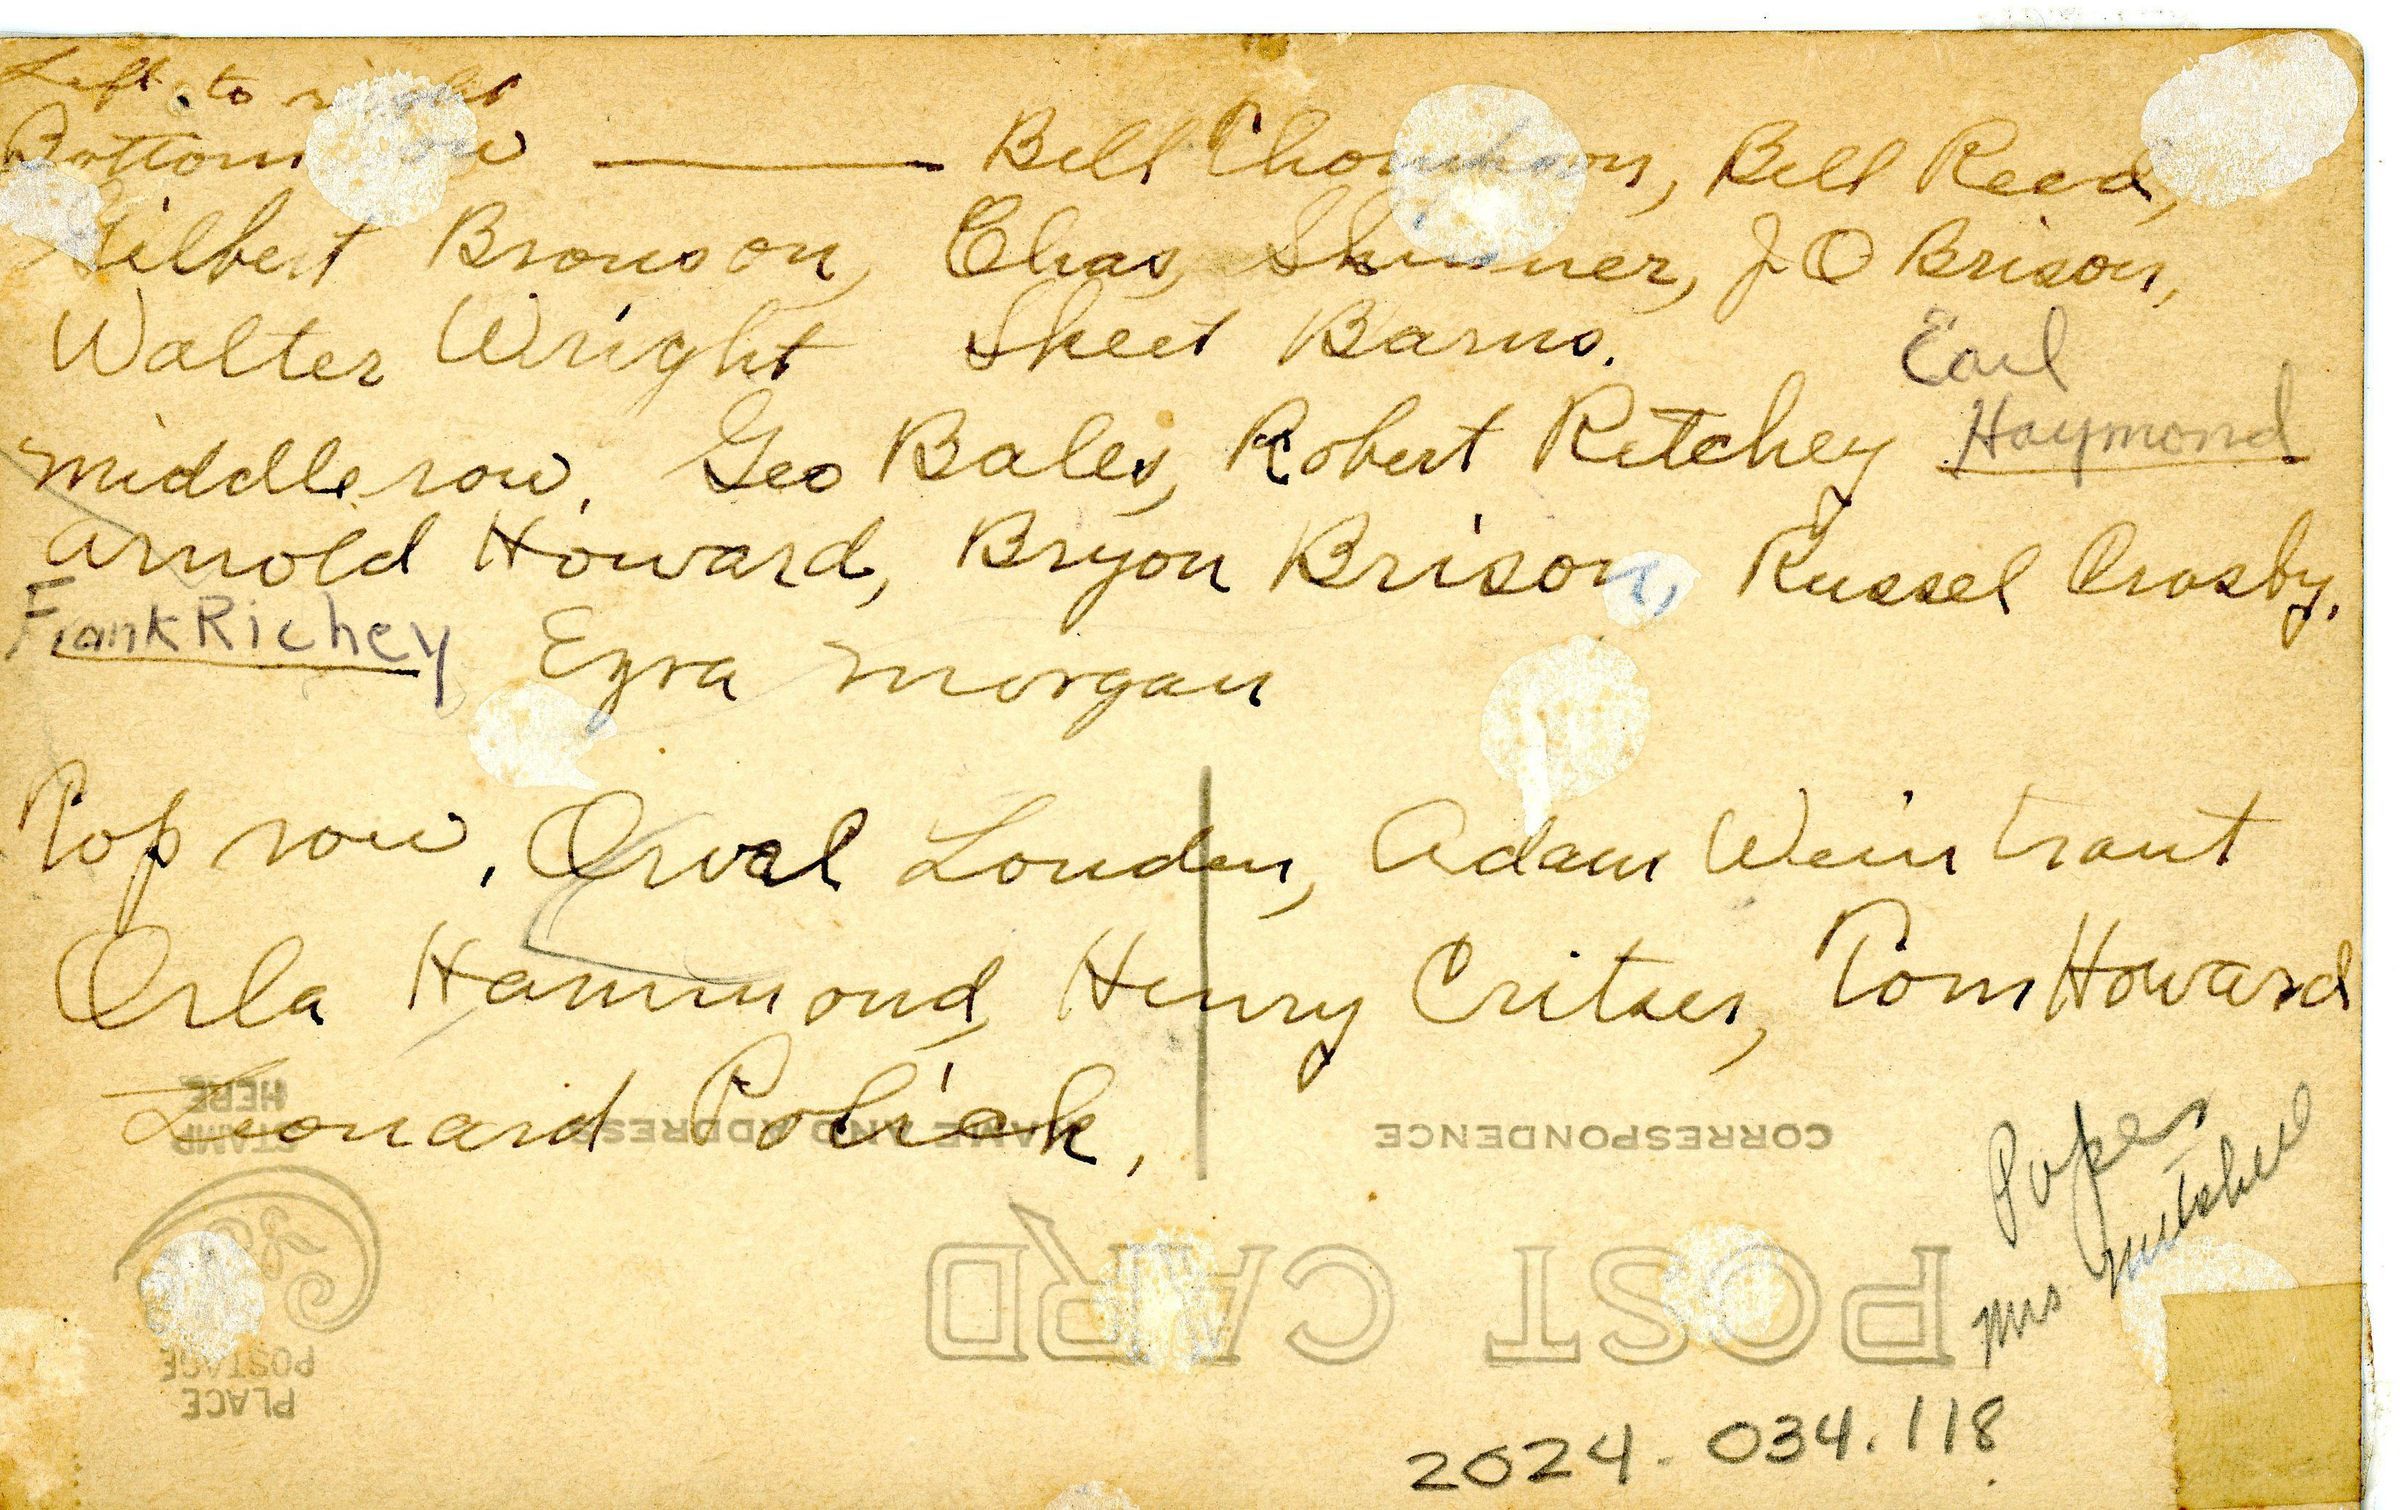 Left to right
Bottom row — Bill Thompson, Bill Reed,
Gilbert Bronson, Chas, Skinner, J O Brison,
Walter Wright Skeet Barns.
Earl
middle row. Geo Bales, Robert Ritchey Haymond
Arnold Howard, Bryon Brison, Russel Crosby.
Frank Richey Ezra Morgan
Top row. Orval Louden, Adam Weintraut
Orla Hammond, Henry Critser, Tom Howard
Leonard Polick,
Popes
Mrs Mitchell
2024.034.118
POST CARD
CORRESPONDENCE
NAME AND ADDRESS
PLACE
POSTAGE
STAMP
HERE